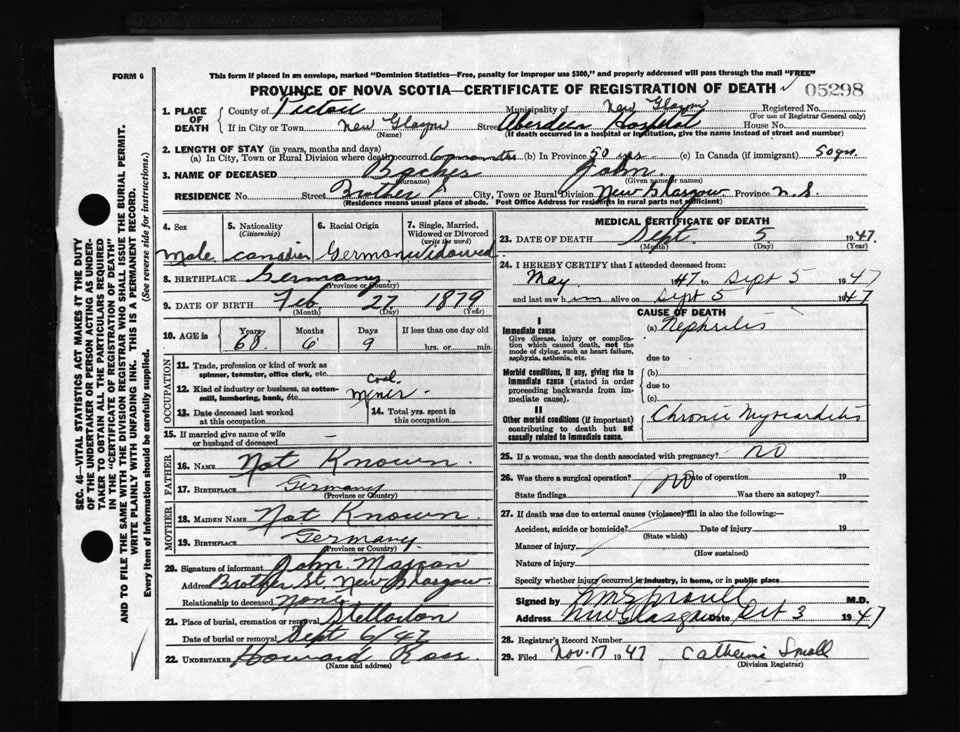 FORM 6
This form if placed in an envelope, marked "Dominion Statistics—Free, penalty for improper use $300," and properly addressed will pass through the mail "FREE"
PROVINCE OF NOVA SCOTIA—CERTIFICATE OF REGISTRATION OF DEATH 05298
1. PLACE OF DEATH County of Pictou Municipality of New Glasgow Registered No.
(For use of Registrar General only)
If in City or Town New Glasgow Street Aberdeen Hospital House No.
(Name) (If death occurred in a hospital or institution, give the name instead of street and number)
2. LENGTH OF STAY (in years, months and days)
(a) In City, Town or Rural Division where death occurred 6 months (b) In Province 50 yrs (c) In Canada (if immigrant) 50 yrs.
3. NAME OF DECEASED John
(Surname) (Given name or names)
RESIDENCE No. Street Brother City, Town or Rural Division New Glasgow Province N.S.
(Residence means usual place of abode. Post Office Address for residents in rural parts not sufficient)
4. Sex 5. Nationality (Citizenship) 6. Racial Origin 7. Single, Married, Widowed or Divorced (write the word)
Male Canadian German Widowed
8. BIRTHPLACE Germany
(Province or Country)
9. DATE OF BIRTH Feb 27 1879
(Month) (Day) (Year)
10. AGE in Years Months Days If less than one day old
68 6 9 hrs. or min.
OCCUPATION
11. Trade, profession or kind of work as spinner, teamster, office clerk, etc.
12. Kind of industry or business, as cotton-mill, lumbering, bank, etc. Coal Miner
13. Date deceased last worked at this occupation 14. Total yrs. spent in this occupation
15. If married give name of wife or husband of deceased —
FATHER
16. NAME Not Known
17. BIRTHPLACE Germany
(Province or Country)
MOTHER
18. MAIDEN NAME Not Known
19. BIRTHPLACE Germany
(Province or Country)
20. Signature of informant John
Address Brother St New Glasgow
Relationship to deceased None
21. Place of burial, cremation or removal Stellarton
Date of burial or removal Sept 6/47
22. UNDERTAKER Howard Ross
(Name and address)
MEDICAL CERTIFICATE OF DEATH
23. DATE OF DEATH Sept. 5 1947
(Month) (Day) (Year)
24. I HEREBY CERTIFY that I attended deceased from:
May 47 to Sept 5 1947
and last saw h im alive on Sept 5 1947
CAUSE OF DEATH
I
Immediate cause (a) Nephritis
Give disease, injury or complication which caused death, not the mode of dying, such as heart failure, asphyxia, asthenia, etc.
due to
Morbid conditions, if any, giving rise to immediate cause (stated in order proceeding backwards from immediate cause). (b)
due to
(c)
II
Other morbid conditions (if important) contributing to death but not causally related to immediate cause. Chronic Myocarditis
25. If a woman, was the death associated with pregnancy? no
26. Was there a surgical operation? no Date of operation 19
State findings Was there an autopsy?
27. If death was due to external causes (violence) fill in also the following:—
Accident, suicide or homicide? Date of injury 19
(State which)
Manner of injury
(How sustained)
Nature of injury
Specify whether injury occurred in industry, in home, or in public place
Signed by M.D.
Address New Glasgow Date Oct 3 1947
28. Registrar's Record Number
29. Filed Nov. 17 1947 Catherine Small
(Division Registrar)
SEC. 46—VITAL STATISTICS ACT MAKES IT THE DUTY
OF THE UNDERTAKER OR PERSON ACTING AS UNDER-
TAKER TO OBTAIN ALL THE PARTICULARS REQUIRED
IN THE "CERTIFICATE OF REGISTRATION OF DEATH"
AND TO FILE THE SAME WITH THE DIVISION REGISTRAR WHO SHALL ISSUE THE BURIAL PERMIT.
WRITE PLAINLY WITH UNFADING INK. THIS IS A PERMANENT RECORD.
Every item of information should be carefully supplied. (See reverse side for instructions.)